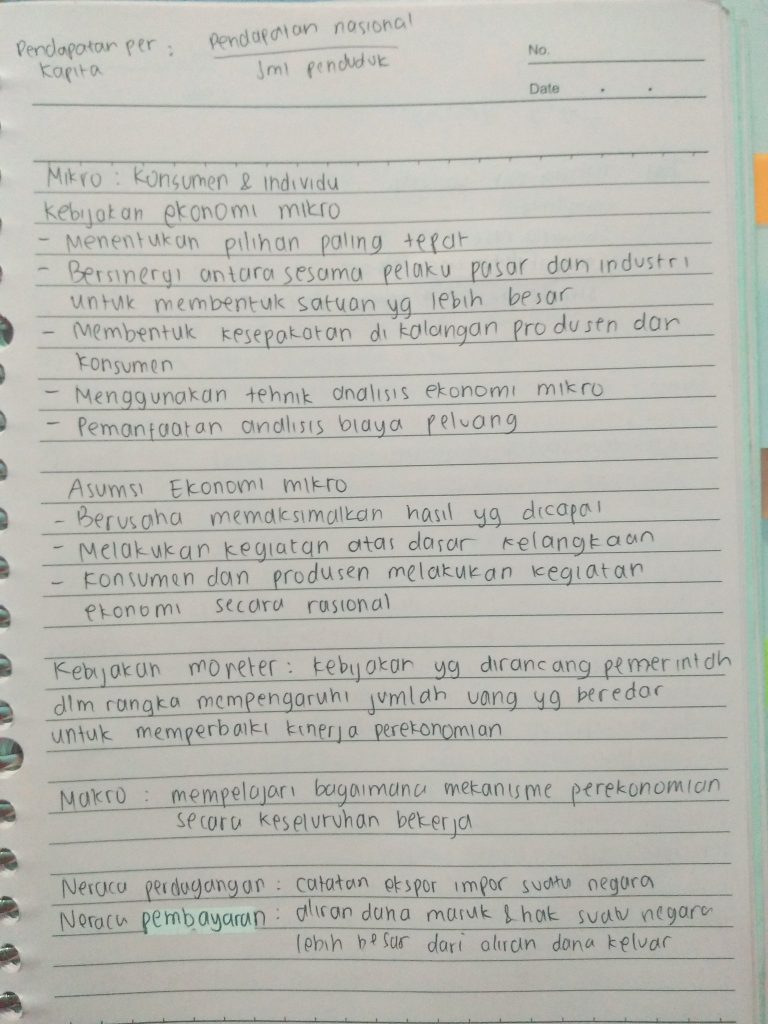 Pendapatan per : Pendapatan nasional
kapita Jml penduduk
No.
Date . .
Mikro : Konsumen & individu
Kebijakan ekonomi mikro
- Menentukan pilihan paling tepat
- Bersinergi antara sesama pelaku pasar dan industri
untuk membentuk satuan yg lebih besar
- Membentuk kesepakatan di kalangan produsen dan
konsumen
- Menggunakan tehnik analisis ekonomi mikro
- Pemanfaatan analisis biaya peluang
Asumsi Ekonomi mikro
- Berusaha memaksimalkan hasil yg dicapai
- Melakukan kegiatan atas dasar kelangkaan
- Konsumen dan produsen melakukan kegiatan
ekonomi secara rasional
Kebijakan moneter : kebijakan yg dirancang pemerintah
dlm rangka mempengaruhi jumlah uang yg beredar
untuk memperbaiki kinerja perekonomian
Makro : mempelajari bagaimana mekanisme perekonomian
secara keseluruhan bekerja
Neraca perdagangan : catatan ekspor impor suatu negara
Neraca pembayaran : aliran dana masuk & hak suatu negara
lebih besar dari aliran dana keluar